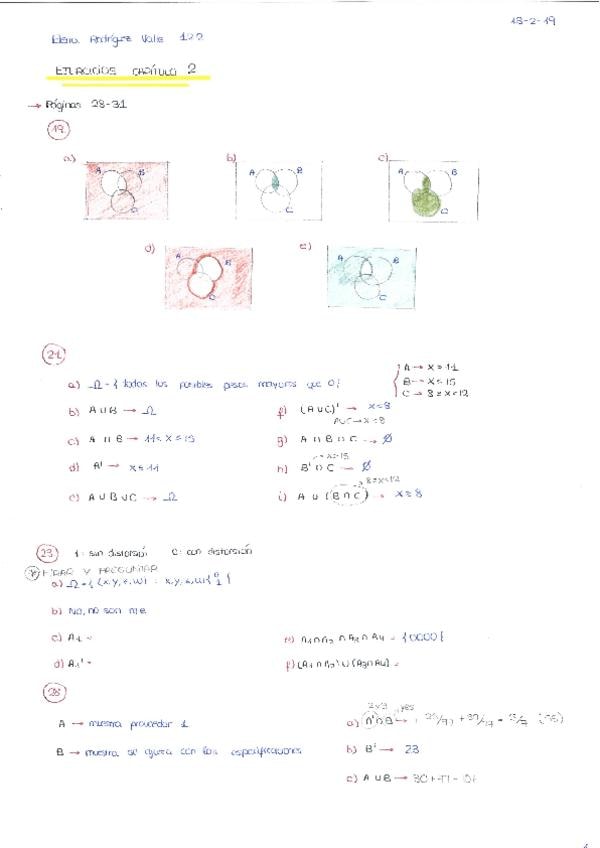 18-2-19
Elena Rodríguez Valle 1º2
EJERCICIOS CAPÍTULO 2
→ Páginas 28-31
19
a) A B C
b) A B C
c) A B C
d) A B C
e) A B C
21
A → x > 11
B → x ≤ 15
C → 8 ≤ x < 12
a) Ω = { todos los posibles pesos mayores que 0 }
b) A ∪ B → Ω
c) A ∩ B → 11 < x ≤ 15
d) A' → x ≤ 11
e) A ∪ B ∪ C → Ω
f) (A ∪ C)' → x < 8
A∪C → x ≥ 8
g) A ∩ B ∩ C → ∅
→ x > 15
h) B' ∩ C → ∅
→ 8 ≤ x < 12
i) A ∪ (B ∩ C) → x ≥ 8
23 1: sin distorsión 0: con distorsión
MIRAR Y PREGUNTAR
a) Ω = { (x, y, z, w) : x, y, z, w { 0 1 }
b) No, no son m.e
c) A1 =
d) A1' =
e) A1 ∩ A2 ∩ A3 ∩ A4 = {0000}
f) (A1 ∩ A2) ∪ (A3 ∩ A4) =
A → muestra proveedor 1
B → muestra se ajusta con las especificaciones
a) A' ∩ B →
b) B' → 23
c) A ∪ B →